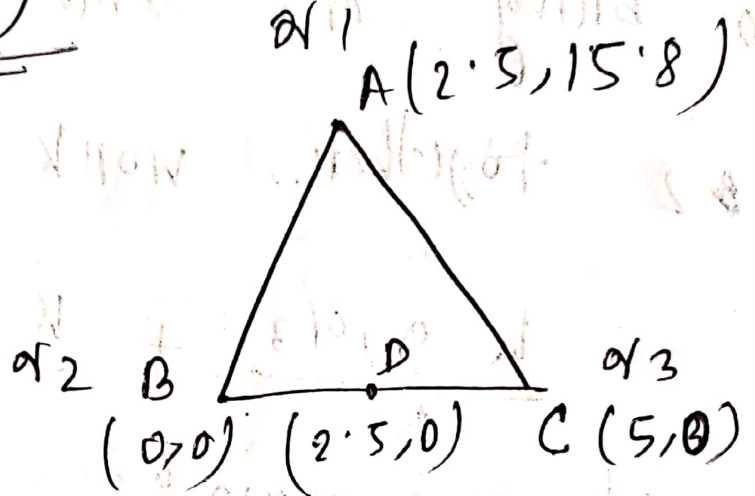 r1
A(2.5, 15.8)
r2 B D r3
(0,0) (2.5,0) C (5,0)